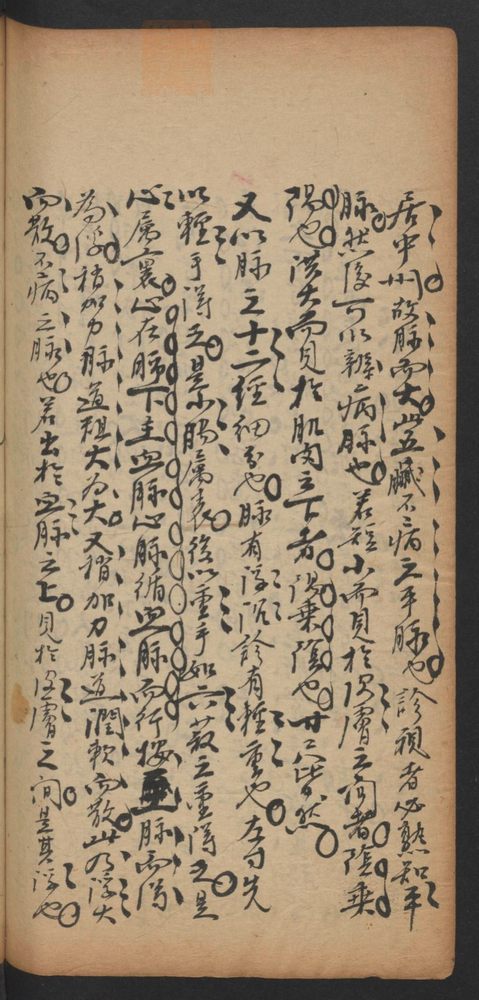 居中州故脉而大此五臟不病之平脉也診視者必熟知平
脉然後可以辨病脉也若短小而見於皮膚之間者陰乗
陽也洪大而見於肌肉之下者陽乗陰也廿二尺皆然
又以脉之十二經細分也脉有浮沉診有輕重也左寸先
以輕手淂之是小腸属表後以重手如六菽之重淂之是
心属裏心在肺下主血脉心脉循血脉而行按至脉而淂
為浮稍加力脉道粗大為大又稍加力脉道潤軟而散此乃浮大
而散不病之脉也若出於血脉之上見於皮膚之間是其浮也